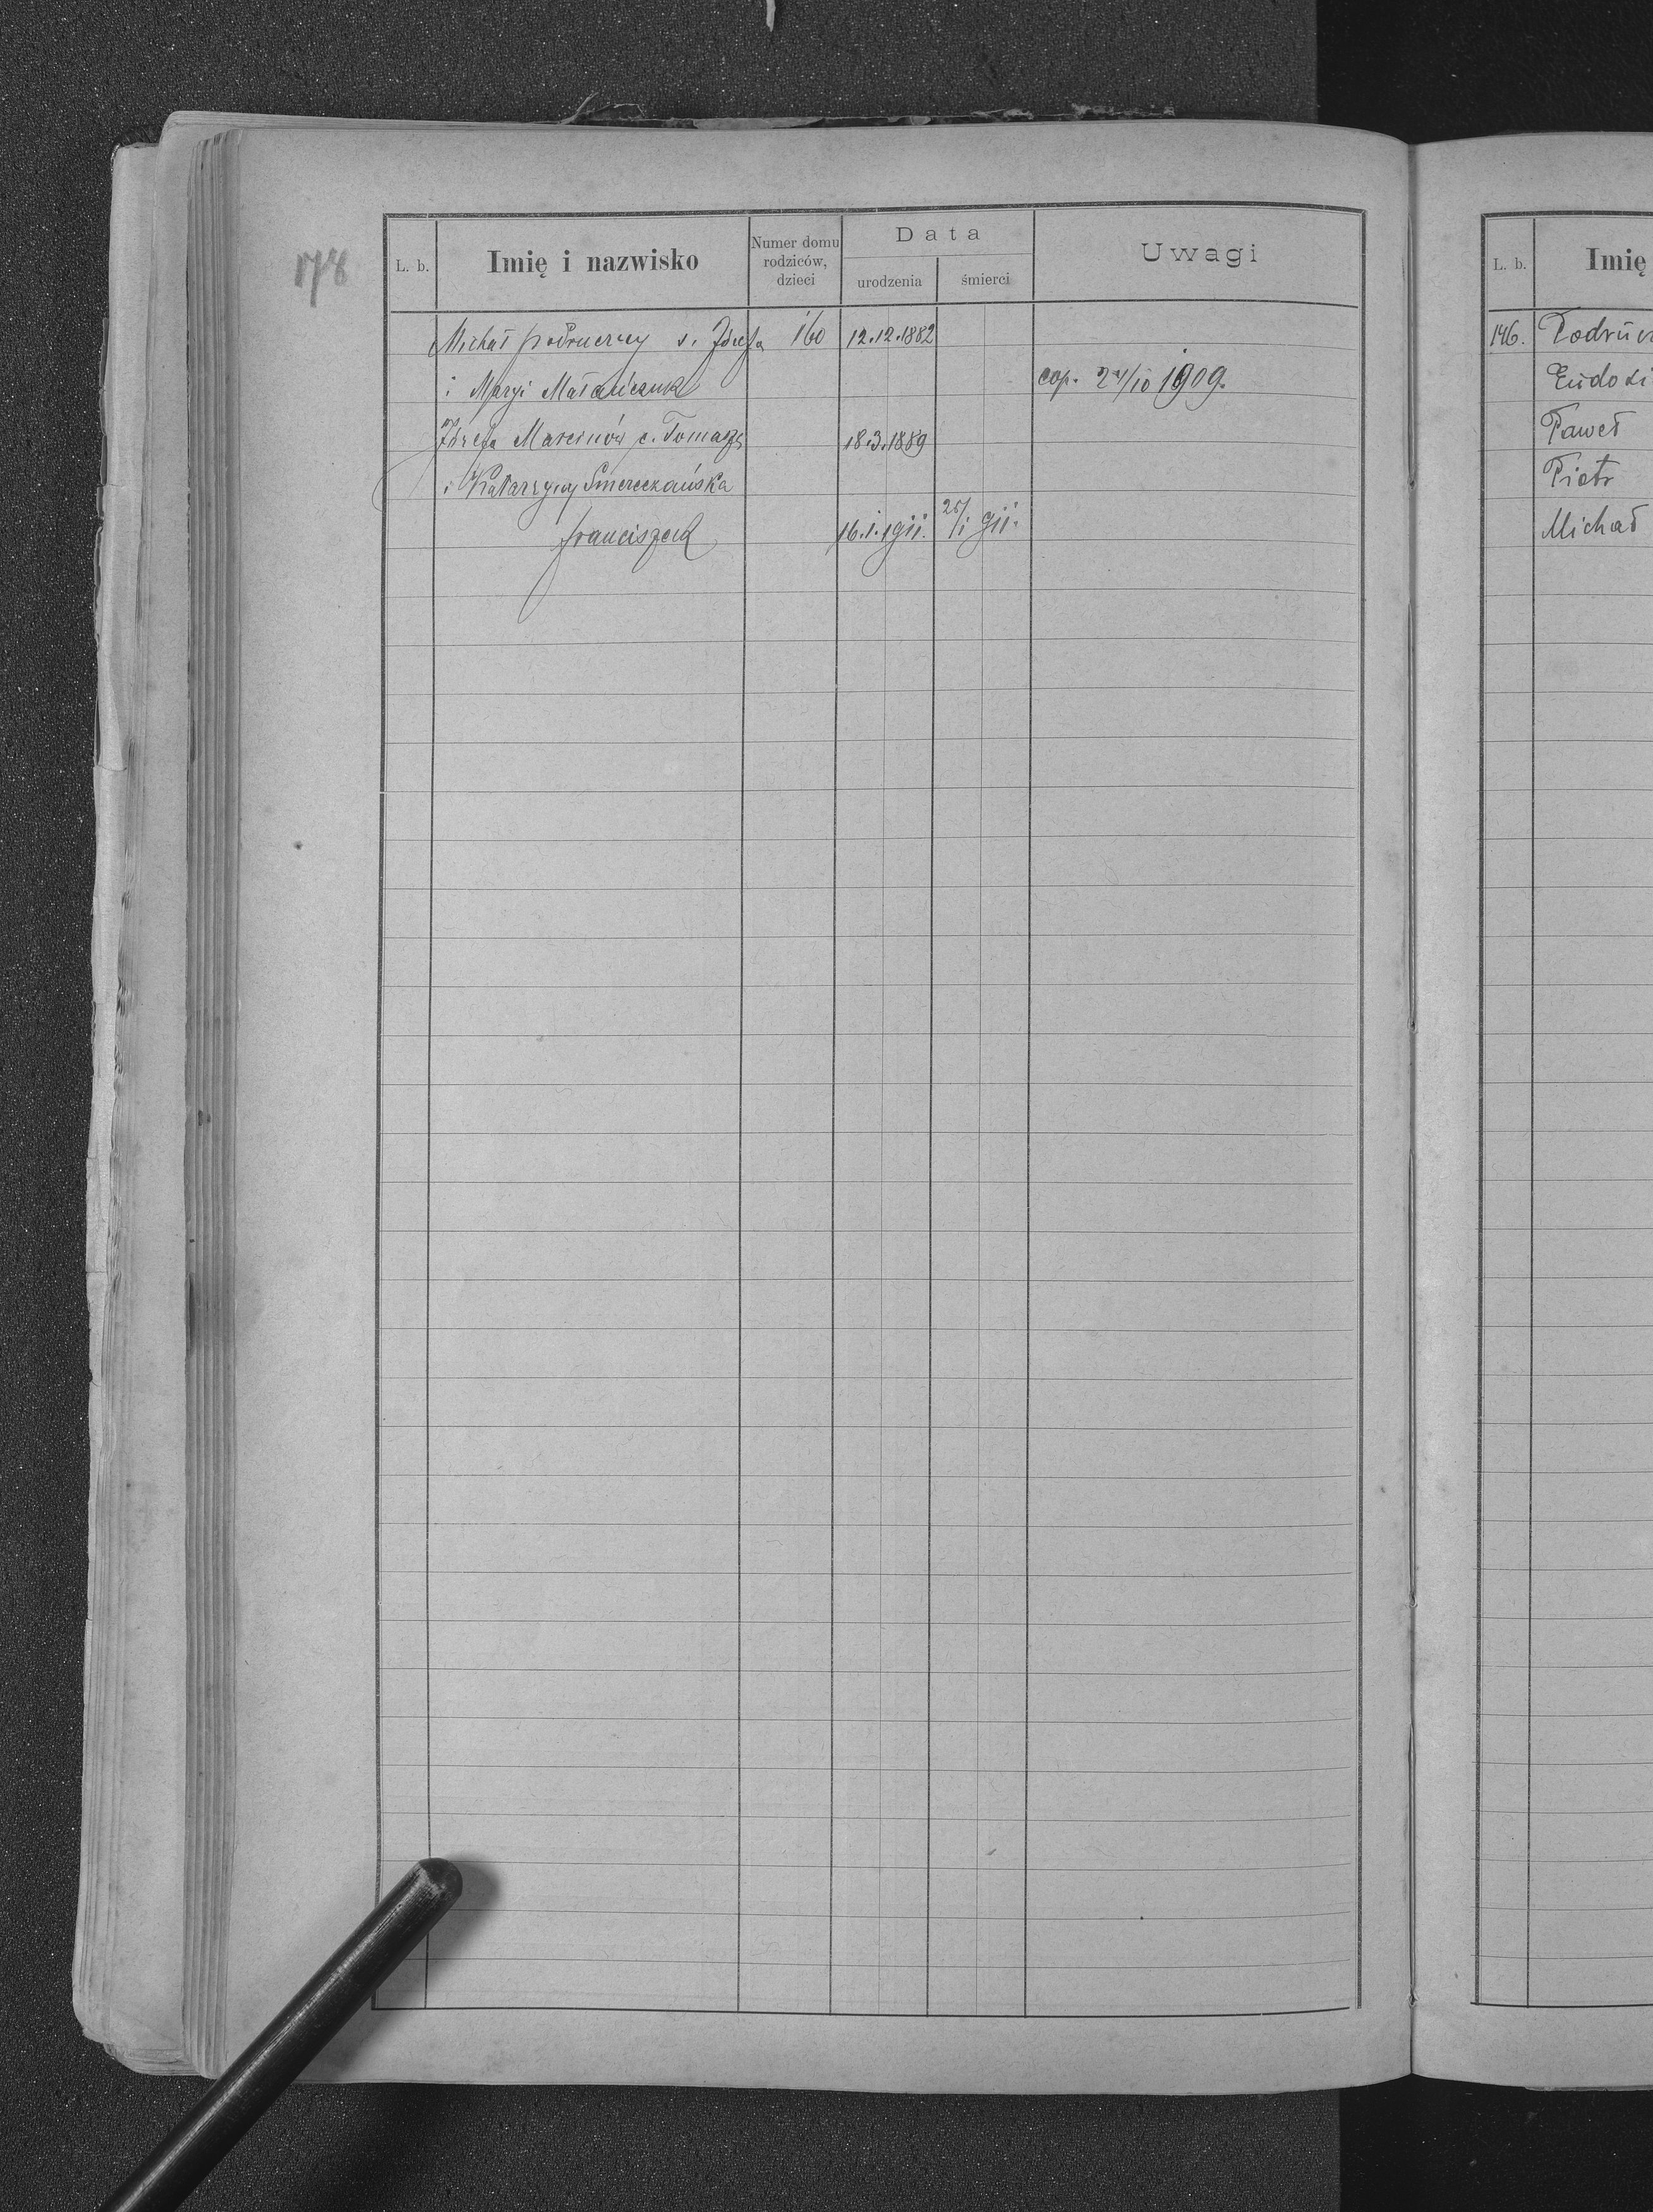 178
L. b. Imię i nazwisko Numer domu rodziców, dzieci Data urodzenia śmierci Uwagi
Michał s. Józefa 160 12.12.1882
i Maryi cop. 24/10 1909.
Józefa Marcinów c. Tomasza 18.3.1889
i Katarzyny Smereczańska
Franciszek 16.1.1911. 25/1 911.
L. b. Imię
146. Podrucz
Eudoxi
Paweł
Piotr
Michał